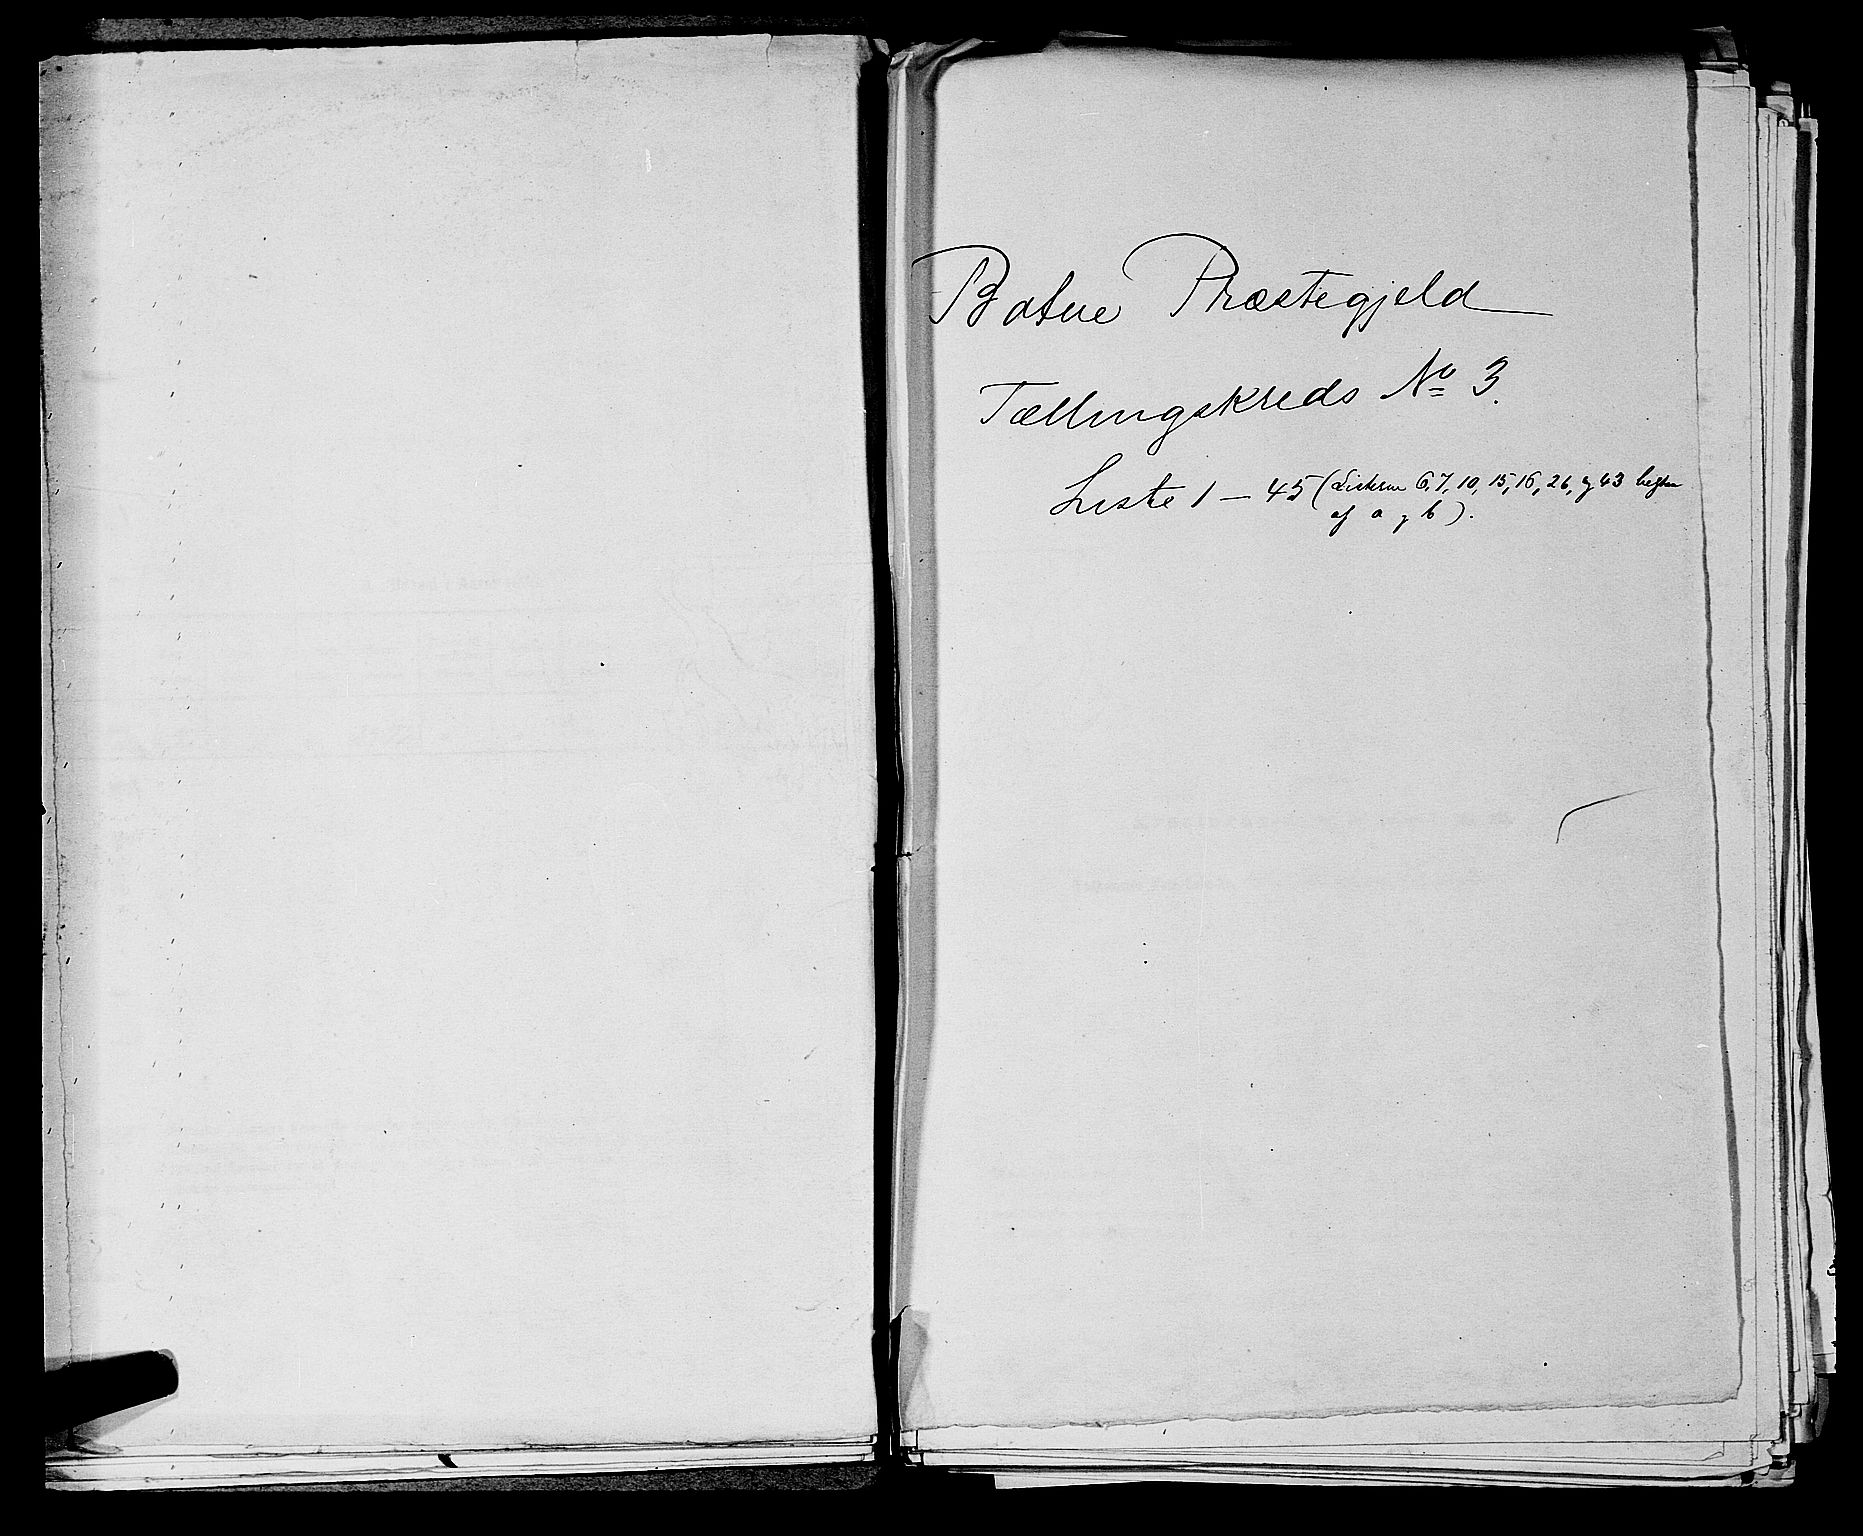 Botne Præstegjeld
Tællingskreds No 3.
Liste 1 – 45 (Listerne 6, 7, 10, 15, 16, 26, og 43 bestaar
af a og b).